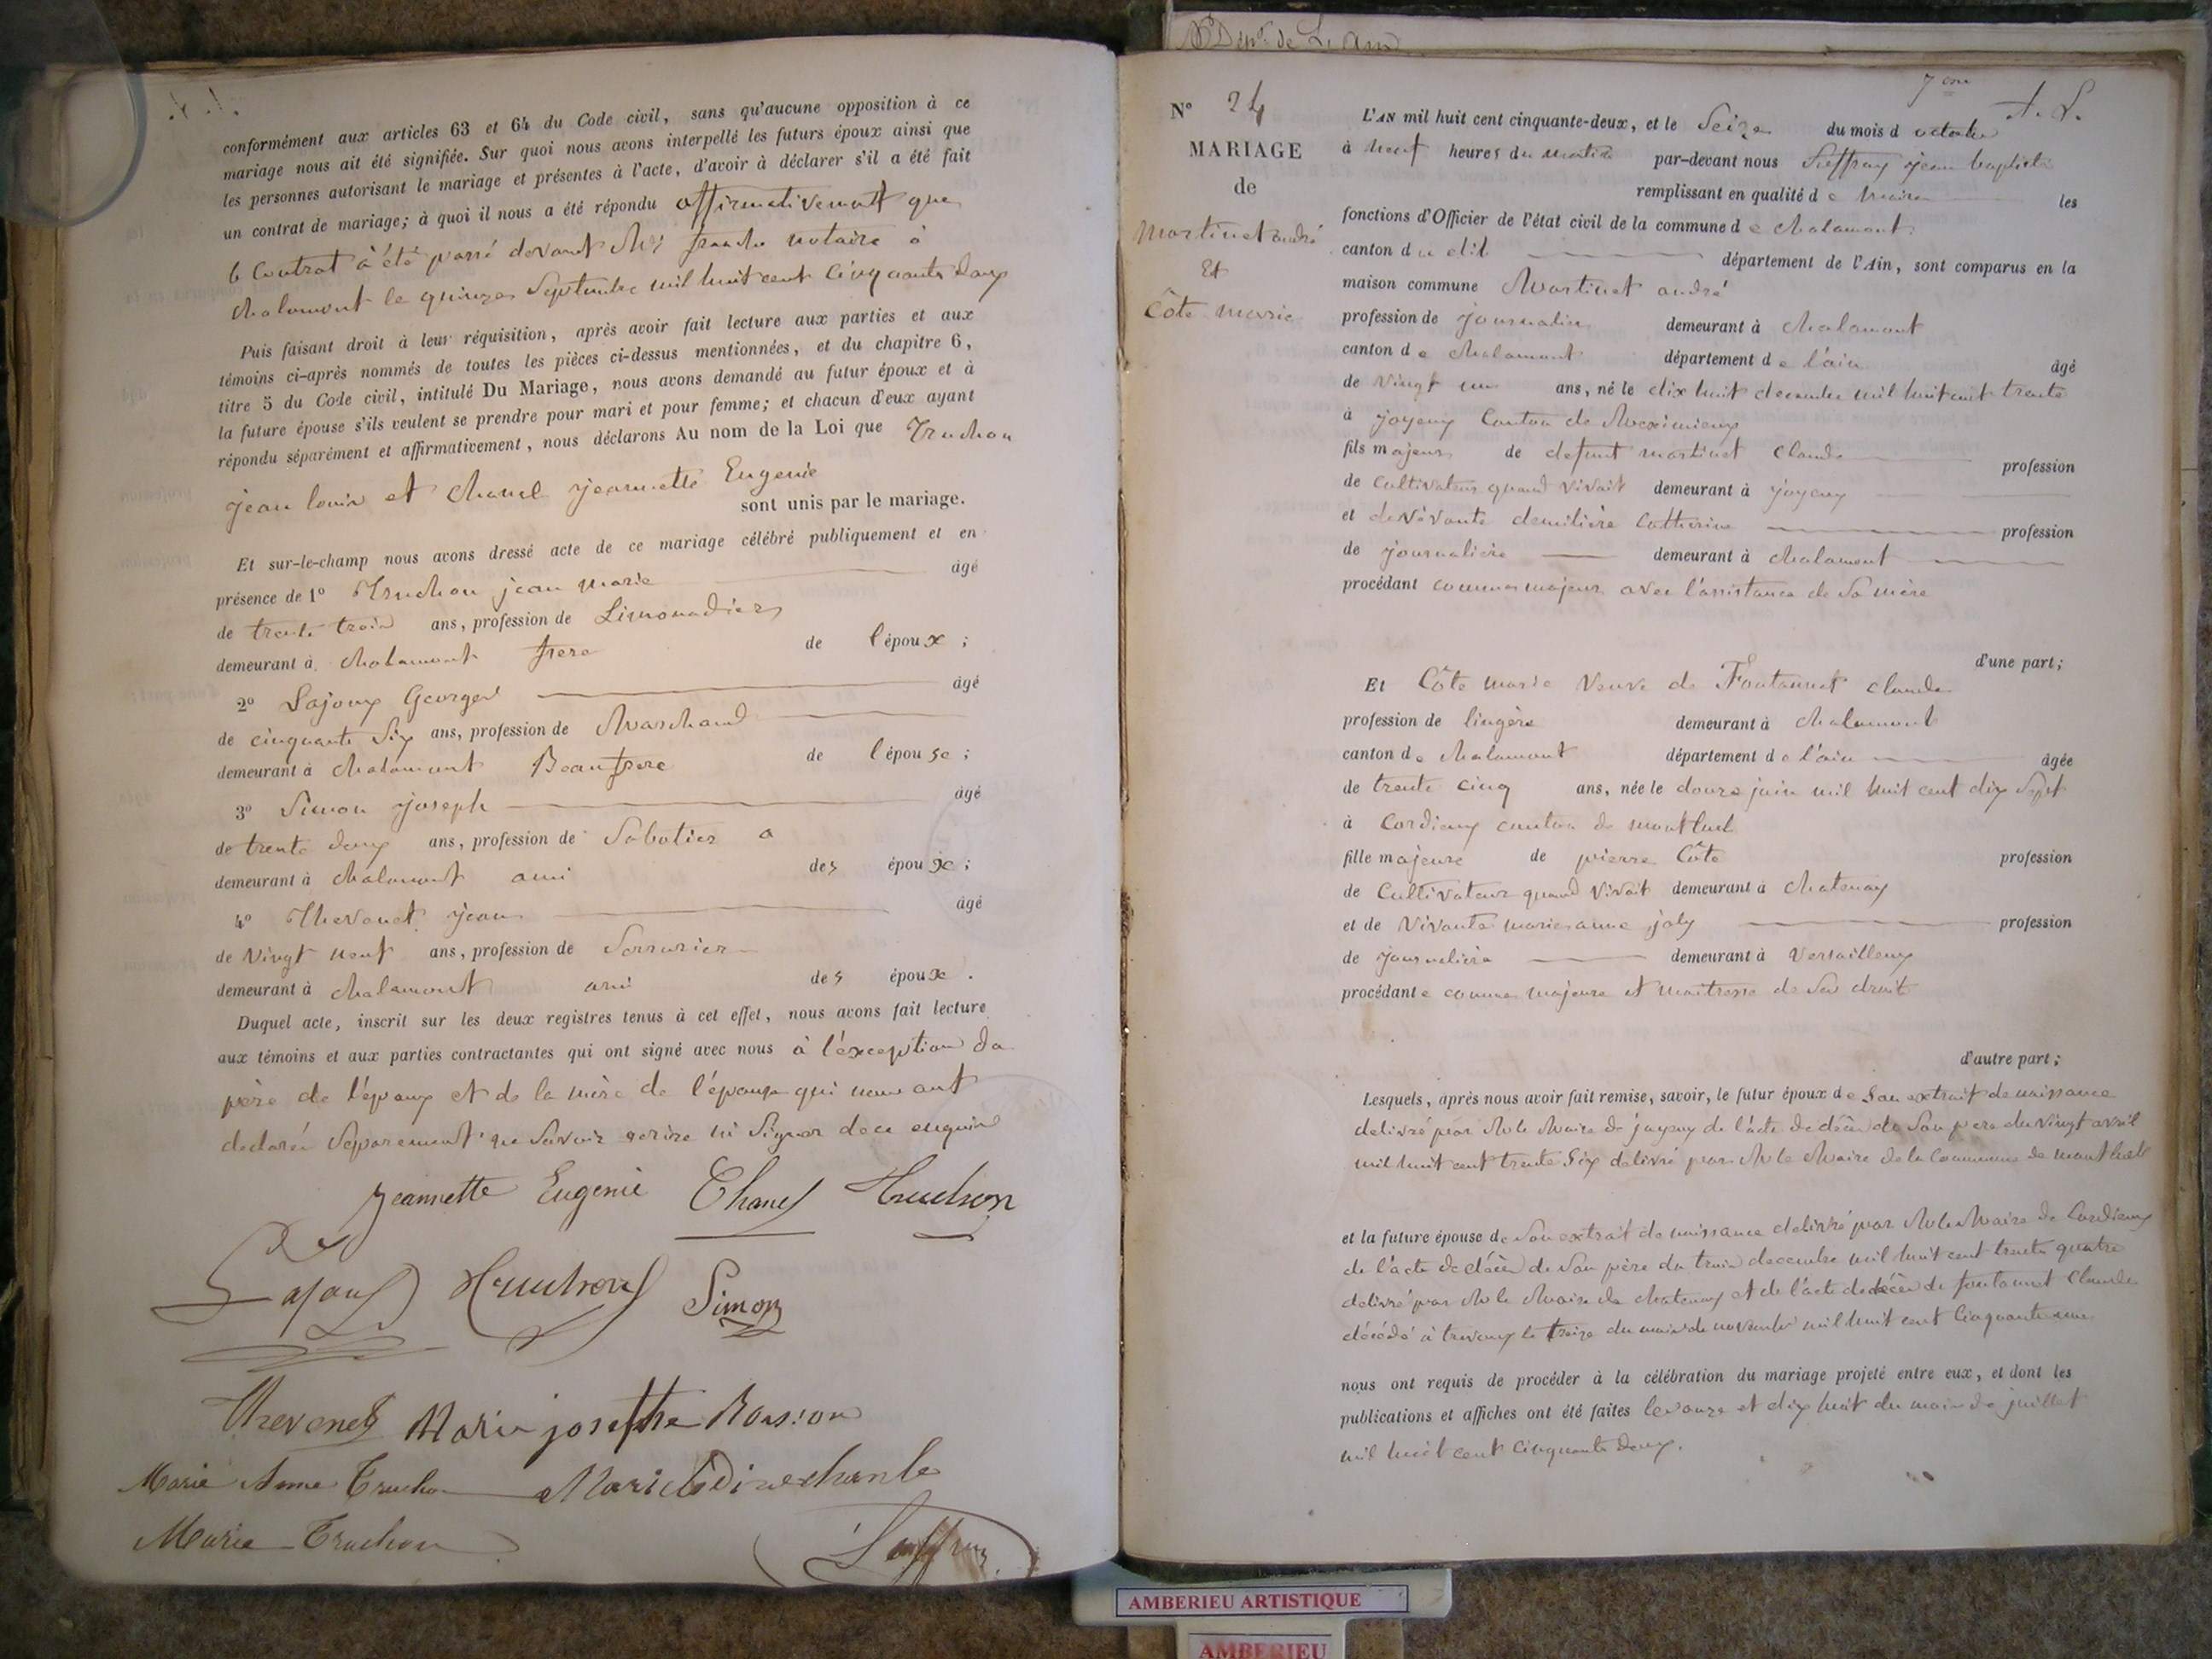 conformément aux articles 63 et 64 du Code civil, sans qu'aucune opposition à ce
mariage nous ait été signifiée. Sur quoi nous avons interpellé les futurs époux ainsi que
les personnes autorisant le mariage et présentes à l'acte, d'avoir à déclarer s'il a été fait
un contrat de mariage; à quoi il nous a été répondu affirmativement que
le Contrat à été passé devant notaire à
chalamont le quinze Septembre mil huit cent cinquante deux
Puis faisant droit à leur réquisition, après avoir fait lecture aux parties et aux
témoins ci-après nommés de toutes les pièces ci-dessus mentionnées, et du chapitre 6,
titre 5 du Code civil, intitulé Du Mariage, nous avons demandé au futur époux et à
la future épouse s'ils veulent se prendre pour mari et pour femme; et chacun d'eux ayant
répondu séparément et affirmativement, nous déclarons Au nom de la Loi que Truchon
jean louis et Chanel jeannette Eugenie
sont unis par le mariage.
Et sur-le-champ nous avons dressé acte de ce mariage célébré publiquement et en
présence de 1º Truchon jean marie âgé
de trente trois ans, profession de Limonadier
demeurant à chalamont frere de l'époux;
2º Lajoux Georges âgé
de cinquante Six ans, profession de Marchand
demeurant à chalamont Beaufrere de l'épouse;
3º Simon joseph âgé
de trente deux ans, profession de Sabotier a
demeurant à chalamont ami des époux;
4º Thevenet jean âgé
de vingt neuf ans, profession de Serrurier
demeurant à chalamont ami des époux.
Duquel acte, inscrit sur les deux registres tenus à cet effet, nous avons fait lecture
aux témoins et aux parties contractantes qui ont signé avec nous à l'exception du
père de l'époux et de la mère de l'épouse qui nous ont
declaré Separement ne Savoir ecrire ni Signer de ce enquis
Jeannette Eugenie Chanel Truchon
Lajoux Truchon Simon
Thevenet Marie josephte
Marie Anne Truchon Marie
Marie Truchon
Suffray
Dépt. de L'Ain
7eme
Nº 24
MARIAGE
de
Martinet andré
Et
Côte marie
L'AN mil huit cent cinquante-deux, et le Seize du mois d octobre
à neuf heures du matin par-devant nous Suffray jean baptiste
remplissant en qualité de Maire les
fonctions d'Officier de l'état civil de la commune de chalamont
canton du dit département de l'Ain, sont comparus en la
maison commune Martinet andré
profession de journalier demeurant à chalamont
canton de chalamont département de l'ain âgé
de vingt un ans, né le dix huit decembre mil huit cent trente
à joyeux Canton de Meximieux
fils majeur de defunt martinet Claude profession
de Cultivateur quand vivait demeurant à joyeux
et de vivante demilière Catherine profession
de journalière demeurant à chalamont
procédant comme majeur avec l'assistance de Sa mère
d'une part;
Et Côte marie Veuve de Fontanet claude
profession de lingère demeurant à chalamont
canton de chalamont département de l'ain âgée
de trente cinq ans, née le douze juin mil huit cent dix Sept
à Cordieux canton de montluel
fille majeure de pierre Côte profession
de Cultivateur quand vivait demeurant à chatenay
et de vivante marie anne joly profession
de journalière demeurant à Versailleux
procédante comme majeure et maitresse de Ses droits
d'autre part;
Lesquels, après nous avoir fait remise, savoir, le futur époux de Son extrait de naissance
delivré par Mr le Maire de joyeux de l'acte de décès de Son père du vingt avril
mil huit cent trente Six delivré par Mr le Maire de la Commune de montluel
et la future épouse de Son extrait de naissance delivré par Mr le Maire de Cordieux
de l'acte de décès de Son père du trois decembre mil huit cent trente quatre
delivré par Mr le Maire de chatenay et de l'acte de décès de fontanet Claude
décédé à trevoux le treize du mois de novembre mil huit cent cinquante une
nous ont requis de procéder à la célébration du mariage projeté entre eux, et dont les
publications et affiches ont été faites les onze et dix huit du mois de juillet
mil huit cent cinquante deux.
AMBERIEU ARTISTIQUE
AMBERIEU